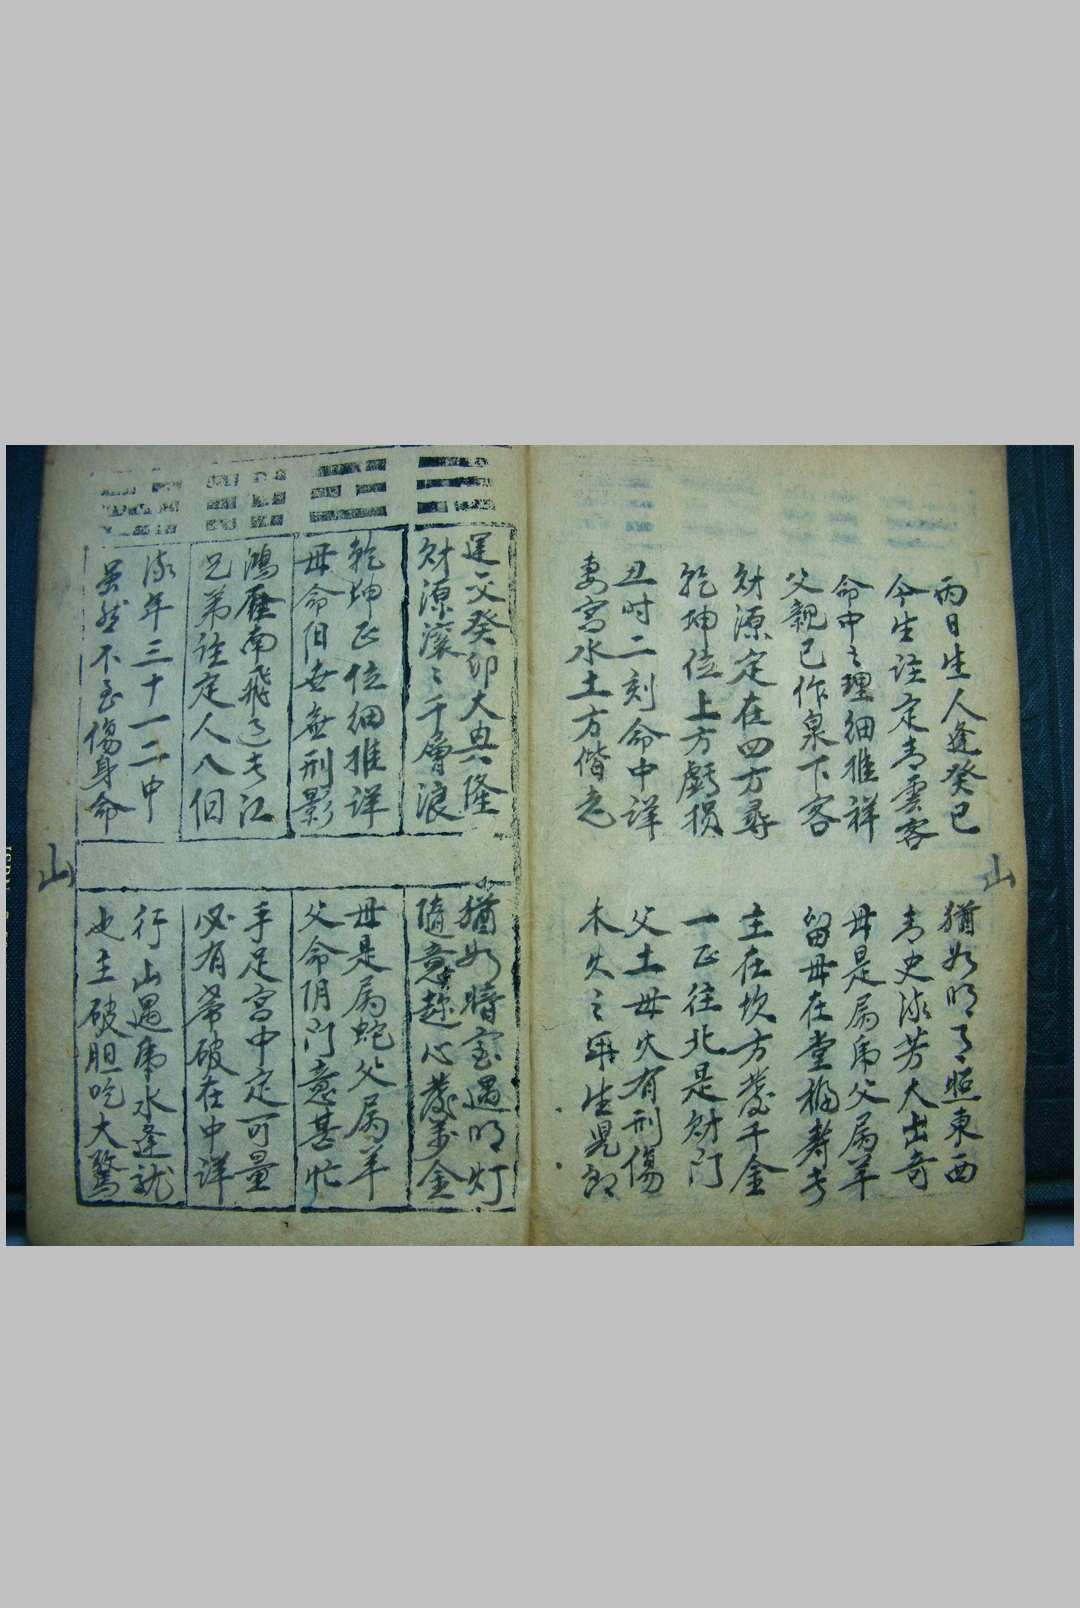 丙日生人逢癸巳
猶如明月照東西
今生注定青雲客
青史流芳大出奇
命中之理細推祥
母是屬虎父屬羊
父親已作泉下客
留母在堂福壽長
財源定在四方尋
主在坎方發千金
乾坤位上方虧損
一正往北是財門
丑時二刻命中詳
父土母火有刑傷
妻宮水土方偕老
木火之年生兒郎
山
運交癸卯大典隆
猶如暗室遇明灯
財源滾之千層浪
隨意趁心發萬金
乾坤正位細推詳
母是屬蛇父屬羊
母命但安無刑影
父命阴門意甚忙
鴻雁南飛過長江
手足宮中定可量
兄弟注定人八個
必有拆破在中詳
流年三十一二中
行山遇虎水逢龍
虽然不至傷身命
也主破胆吃大驚
山